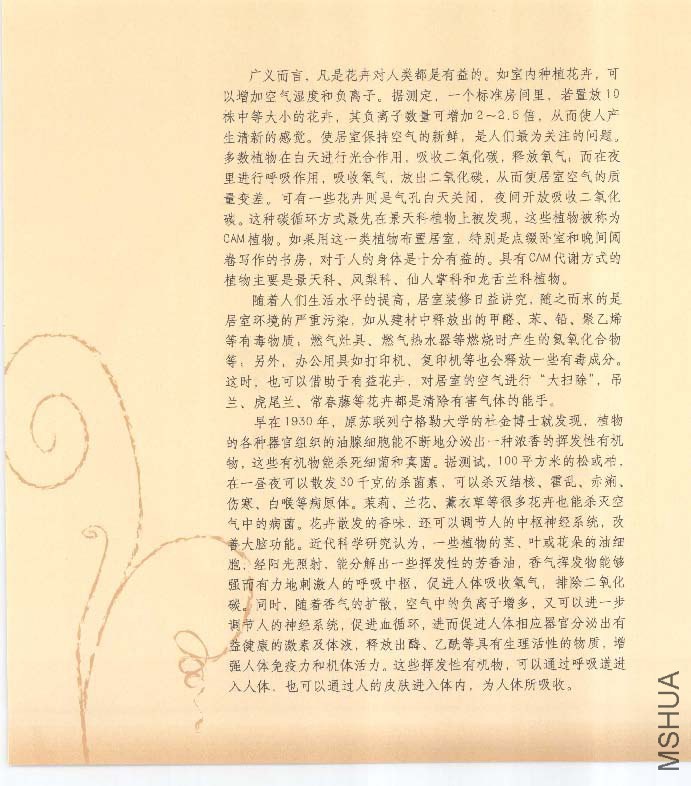 广义而言，凡是花卉对人类都是有益的。如室内种植花卉，可
以增加空气湿度和负离子。据测定，一个标准房间里，若置放10
株中等大小的花卉，其负离子数量可增加2～2.5倍，从而使人产
生清新的感觉。使居室保持空气的新鲜，是人们最为关注的问题。
多数植物在白天进行光合作用，吸收二氧化碳，释放氧气；而在夜
里进行呼吸作用，吸收氧气，放出二氧化碳，从而使居室空气的质
量变差。可有一些花卉则是气孔白天关闭，夜间开放吸收二氧化
碳。这种碳循环方式最先在景天科植物上被发现，这些植物被称为
CAM植物。如果用这一类植物布置居室，特别是点缀卧室和晚间阅
卷写作的书房，对于人的身体是十分有益的。具有CAM代谢方式的
植物主要是景天科、凤梨科、仙人掌科和龙舌兰科植物。
随着人们生活水平的提高，居室装修日益讲究，随之而来的是
居室环境的严重污染，如从建材中释放出的甲醛、苯、铅、聚乙烯
等有毒物质；燃气灶具、燃气热水器等燃烧时产生的氮氧化合物
等；另外，办公用具如打印机、复印机等也会释放一些有毒成分。
这时，也可以借助于有益花卉，对居室的空气进行“大扫除”，吊
兰、虎尾兰、常春藤等花卉都是清除有害气体的能手。
早在1930年，原苏联列宁格勒大学的杜金博士就发现，植物
的各种器官组织的油腺细胞能不断地分泌出一种浓香的挥发性有机
物，这些有机物能杀死细菌和真菌。据测试，100平方米的松或柏，
在一昼夜可以散发30千克的杀菌素，可以杀灭结核、霍乱、赤痢、
伤寒、白喉等病原体。茉莉、兰花、薰衣草等很多花卉也能杀灭空
气中的病菌。花卉散发的香味，还可以调节人的中枢神经系统，改
善大脑功能。近代科学研究认为，一些植物的茎、叶或花朵的油细
胞，经阳光照射，能分解出一些挥发性的芳香油，香气挥发物能够
强而有力地刺激人的呼吸中枢，促进人体吸收氧气，排除二氧化
碳。同时，随着香气的扩散，空气中的负离子增多，又可以进一步
调节人的神经系统，促进血循环，进而促进人体相应器官分泌出有
益健康的激素及体液，释放出酶、乙酰等具有生理活性的物质，增
强人体免疫力和机体活力。这些挥发性有机物，可以通过呼吸道进
入人体，也可以通过人的皮肤进入体内，为人体所吸收。
MSHUA